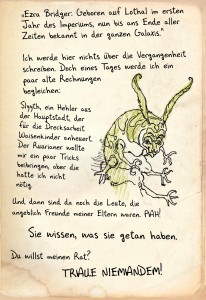 „Ezra Bridger: Geboren auf Lothal im ersten
Jahr des Imperiums, nun bis ans Ende aller
Zeiten bekannt in der ganzen Galaxis."
Ich werde hier nichts über die Vergangenheit
schreiben. Doch eines Tages werde ich ein
paar alte Rechnungen
begleichen:
Slyyth, ein Hehler aus
der Hauptstadt, der
für die Drecksarbeit
Waisenkinder anheuert.
Der Ruurianer wollte
mir ein paar Tricks
beibringen, aber die
hatte ich nicht
nötig.
Und dann sind da noch die Leute, die
angeblich Freunde meiner Eltern waren. PAH!
Sie wissen, was sie getan haben.
Du willst meinen Rat?
TRAUE NIEMANDEM!